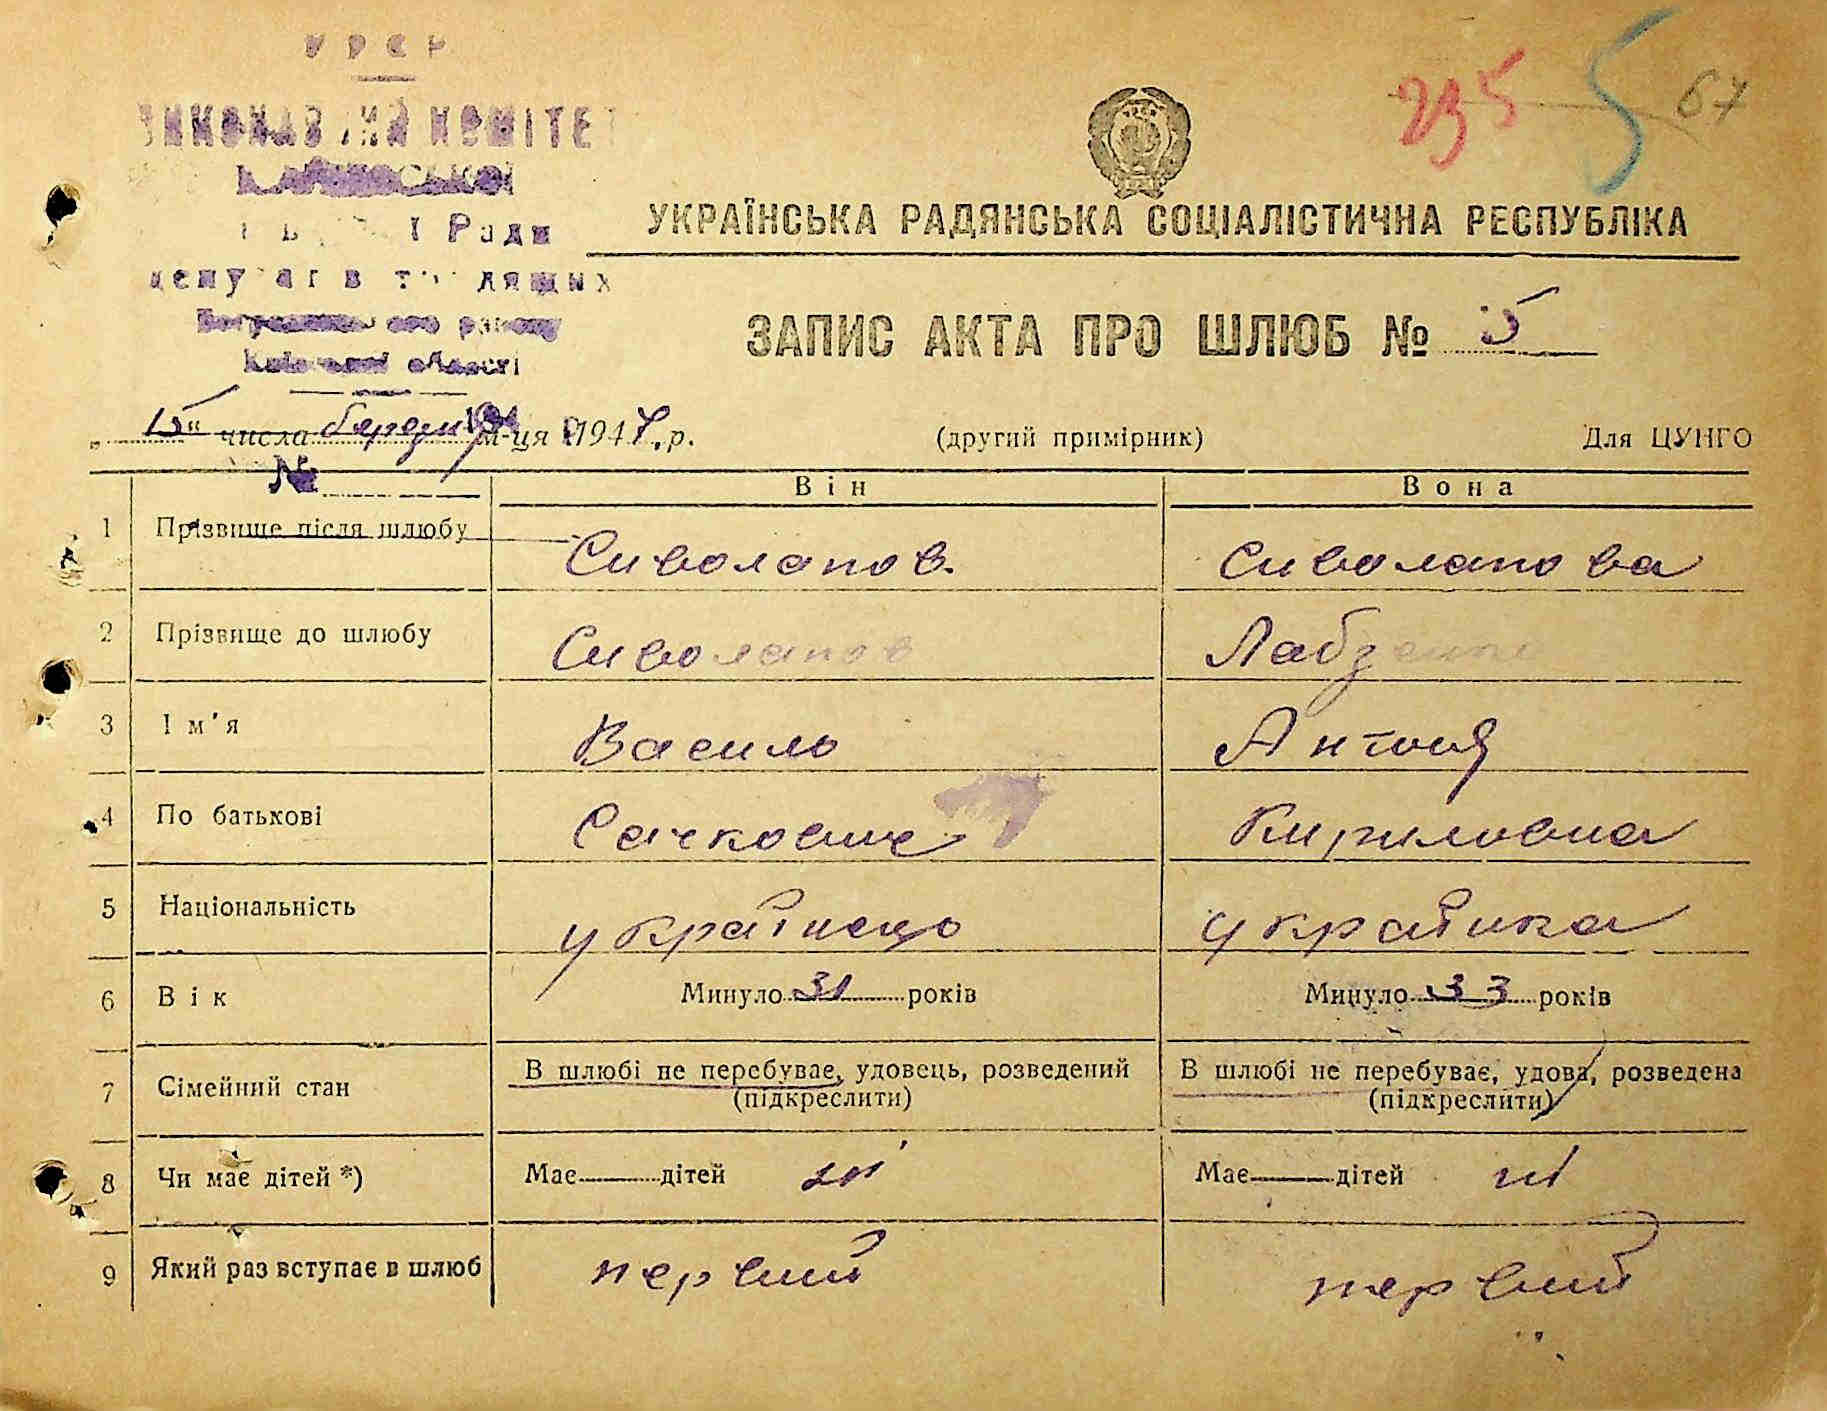 УРСР
ВИКОНАВЧИЙ КОМІТЕТ
Ради
депутатів трудящих
району
області
235 5 67
УКРАЇНСЬКА РАДЯНСЬКА СОЦІАЛІСТИЧНА РЕСПУБЛІКА
ЗАПИС АКТА ПРО ШЛЮБ № 5
„15“ числа березня м-ця 1947 р. (другий примірник) Для ЦУНГО
№
Він Вона
1 Прізвище після шлюбу Сиволапов Сиволапова
2 Прізвище до шлюбу Сиволапов Лабзенко
3 Ім'я Василь
4 По батькові Кириловна
5 Національність українець українка
6 Вік Минуло 31 років Минуло 33 років
7 Сімейний стан В шлюбі не перебуває, удовець, розведений В шлюбі не перебуває, удова, розведена
(підкреслити) (підкреслити)
8 Чи має дітей *) Має дітей ні Має дітей ні
9 Який раз вступає в шлюб первий первий